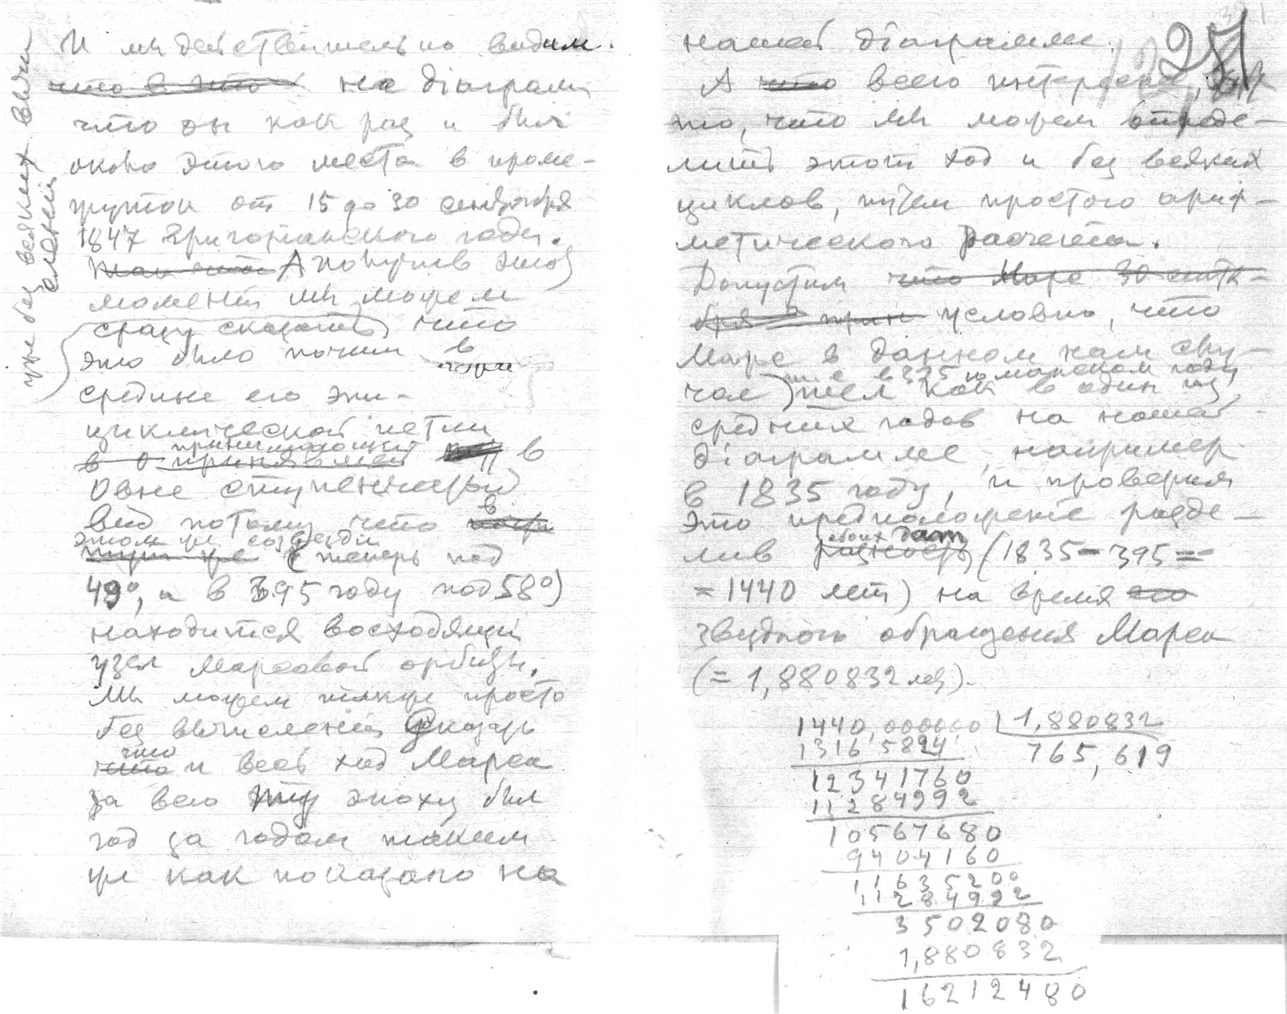 И мы действительно видим
что в это на діаграмм
что он как раз и был
около этого места в проме-
жуток от 15 до 30 сентября
1847 Григорианского года.
А получив этот
момент мы можем
сразу сказать что
уже без всяких вычи
слений
это было почти в
средине его эпи-
циклической петли
принимающей в
Овне ступенчатый
вид потому что в
этом же созвездии
тут же (теперь под
49°, а в 395 году под 58°)
находится восходящий
узел Марсовой орбиты.
Мы можем также просто
без вычислений сказать
что и весь ход Марса
за всю эту эпоху был
год за годом таким
же как показано на
281
нашей діаграмме.
А что всего интереснее,
то, что мы можем опреде-
лить этот ход и без всяких
циклов, путем простого ариф-
метического расчета.
Допустим что Марс 30 сентя-
бря условно, что
Марс в данном нам слу-
чае в 395 юлианском году
шел как в один из
средних годов на нашей
діаграмме, например
в 1835 году, и проверим
это предположение разде-
лив разность обоих дат (1835-395=
=1440 лет) на время его
звездного обращения Марса
(=1,880832 лет).
1440,000000 | 1,880832
13165824 765,619
12341760
11284992
10567680
9404160
11635200
11284992
3502080
1,880832
16212480